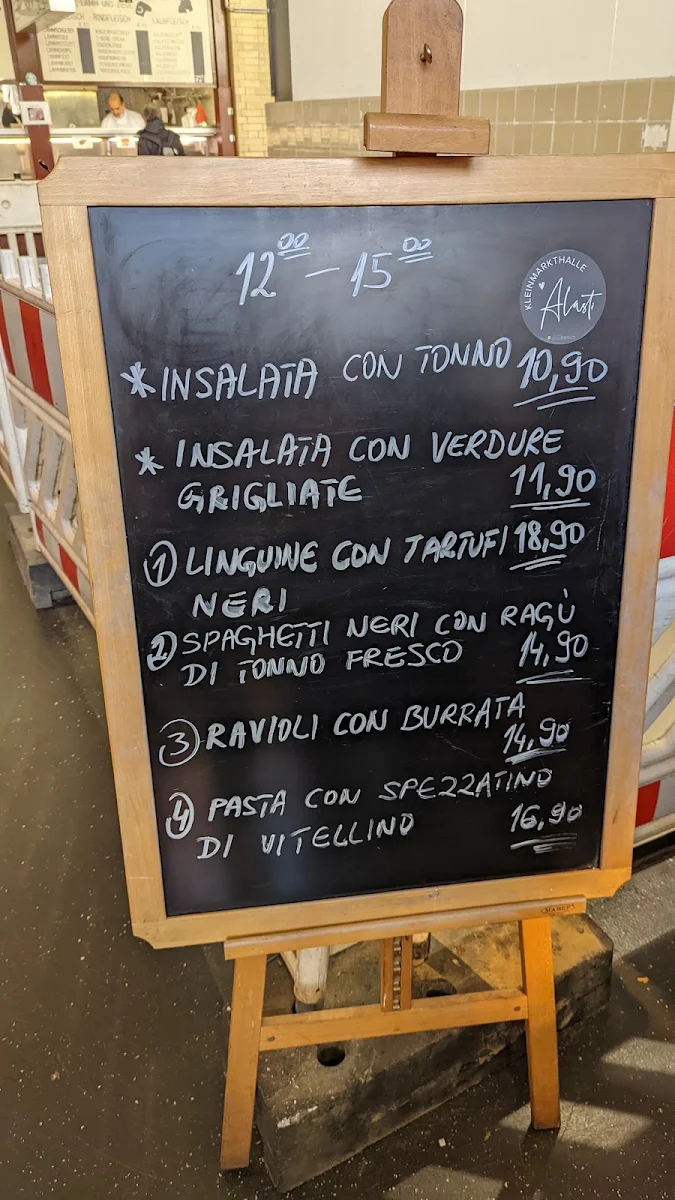 RINDFLEISCH
KALBFLEISCH
12 00 – 15 00
KLEINMARKTHALLE
Alasti
* INSALATA CON TONNO 10,90
* INSALATA CON VERDURE
GRIGLIATE 11,90
1 LINGUINE CON TARTUFI 18,90
NERI
2 SPAGHETTI NERI CON RAGÙ
DI TONNO FRESCO 14,90
3 RAVIOLI CON BURRATA
14,90
4 PASTA CON SPEZZATINO
DI VITELLINO 16,90